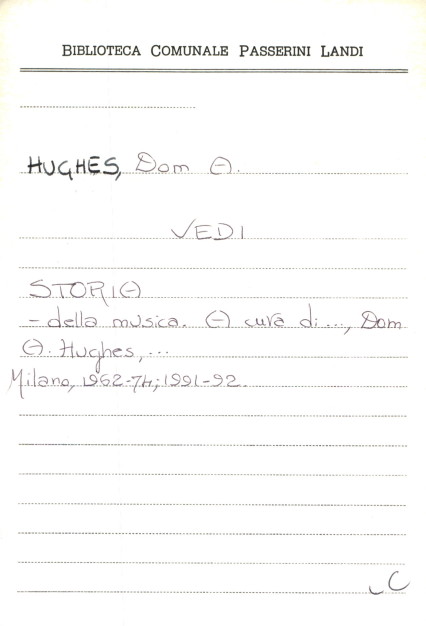 BIBLIOTECA COMUNALE PASSERINI LANDI
HUGHES, Dom A.
VEDI
STORIA
- della musica. A cura di ..., Dom
A. Hughes, ...
Milano, 1962-74; 1991-92.